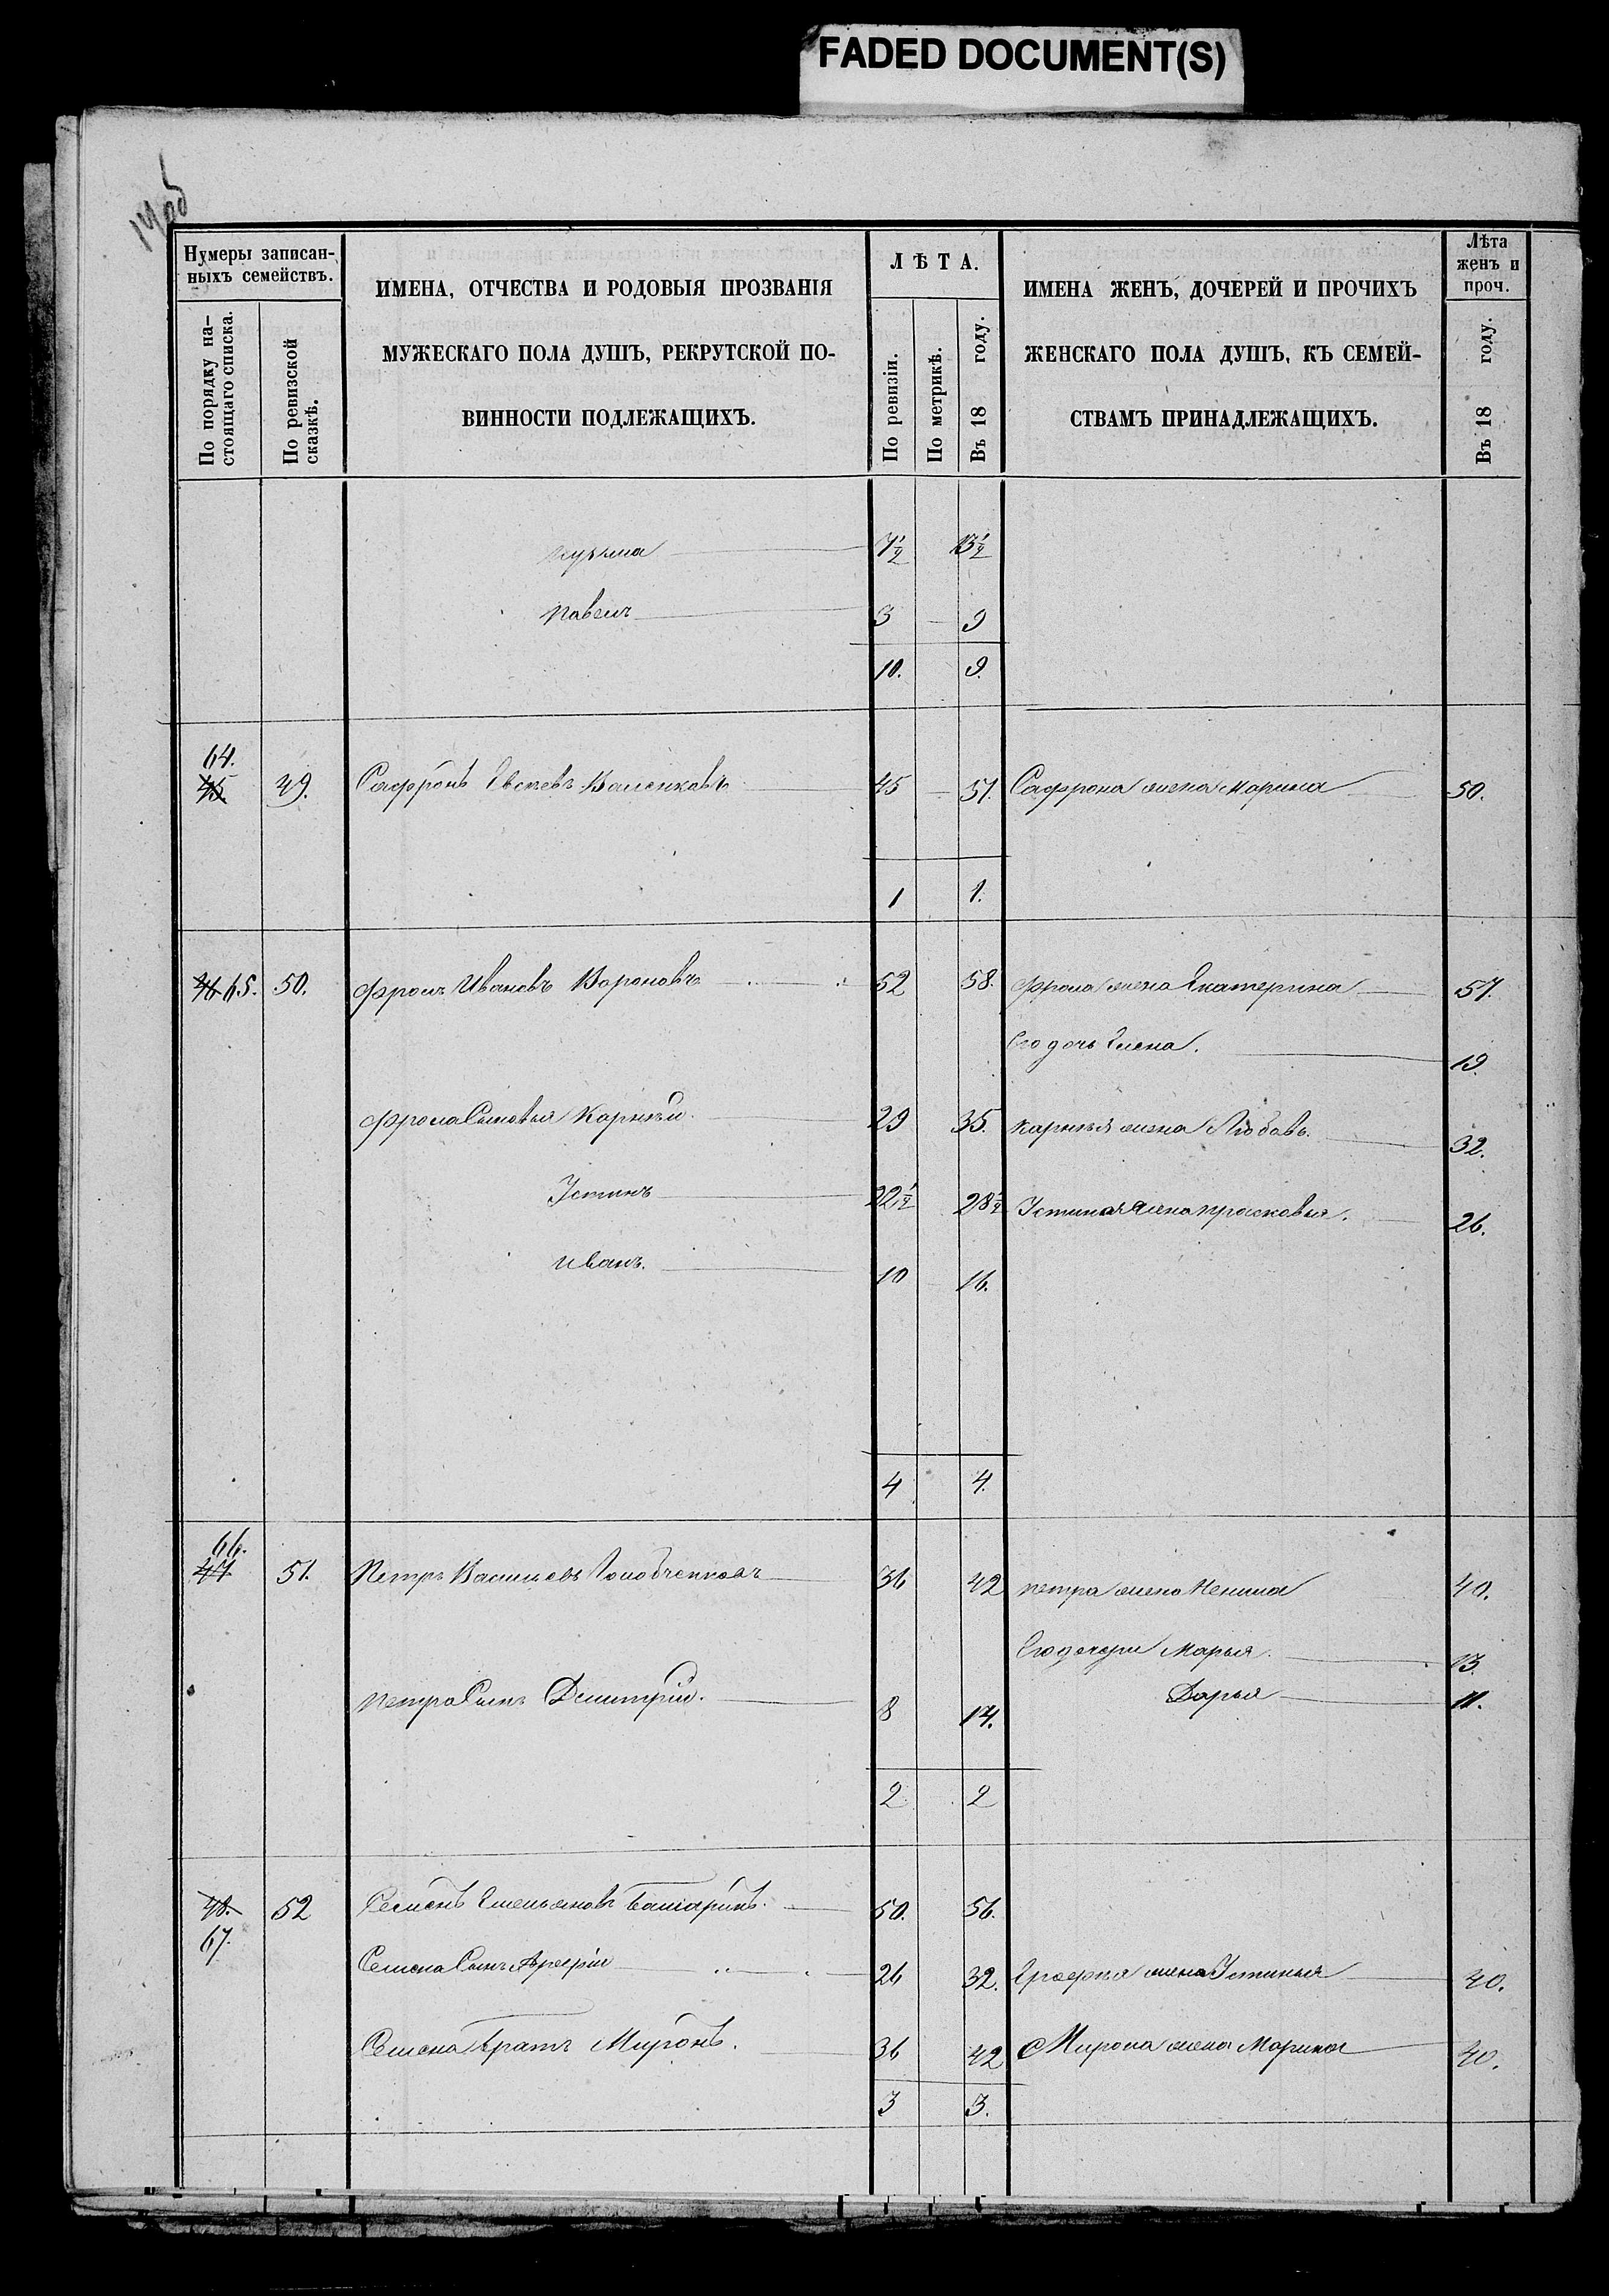 FADED DOCUMENT(S)
Нумеры записан-
ныхъ семействъ.
По порядку на-
стоящаго списка.
По ревизской
сказкѣ.
ИМЕНА, ОТЧЕСТВА И РОДОВЫЯ ПРОЗВАНІЯ
МУЖЕСКАГО ПОЛА ДУШЪ, РЕКРУТСКОЙ ПО-
ВИННОСТИ ПОДЛЕЖАЩИХЪ.
ЛѢТА.
По ревизіи.
По метрикѣ.
Въ 18 году.
ИМЕНА ЖЕНЪ, ДОЧЕРЕЙ И ПРОЧИХЪ
ЖЕНСКАГО ПОЛА ДУШЪ, КЪ СЕМЕЙ-
СТВАМЪ ПРИНАДЛЕЖАЩИХЪ.
Лѣта
женъ и
проч.
Въ 18 году.
7½ 13½
Павелъ 3 9
10. 9.
64.
45 49. Сафронъ 45 51. Сафрона жена Марина 50.
1 1.
46 65. 50. Фролъ Ивановъ Вороновъ 52 58. Фрола жена Екатерина 57.
Его дочь Елена. 19.
Фрола Сыновья Карнѣй 29 35. Карнѣя жена Любовь. 32.
Устинъ 22½ 28½ Устина жена Прасковья. 26.
Иванъ. 10 16.
4 4.
66.
47 51. Петръ Васильевъ 36 42 Петра жена 40.
Его дочери Марья. 13.
Петра Сынъ Дмитрій. 8 14. Дарья 11.
2 2
48. 52 Семенъ Емельяновъ 50. 56.
67.
Семена Сынъ 26 32. жена Устинья 40.
Семена Братъ Миронъ. 36 42 Мирона жена Марина 40.
3 3.